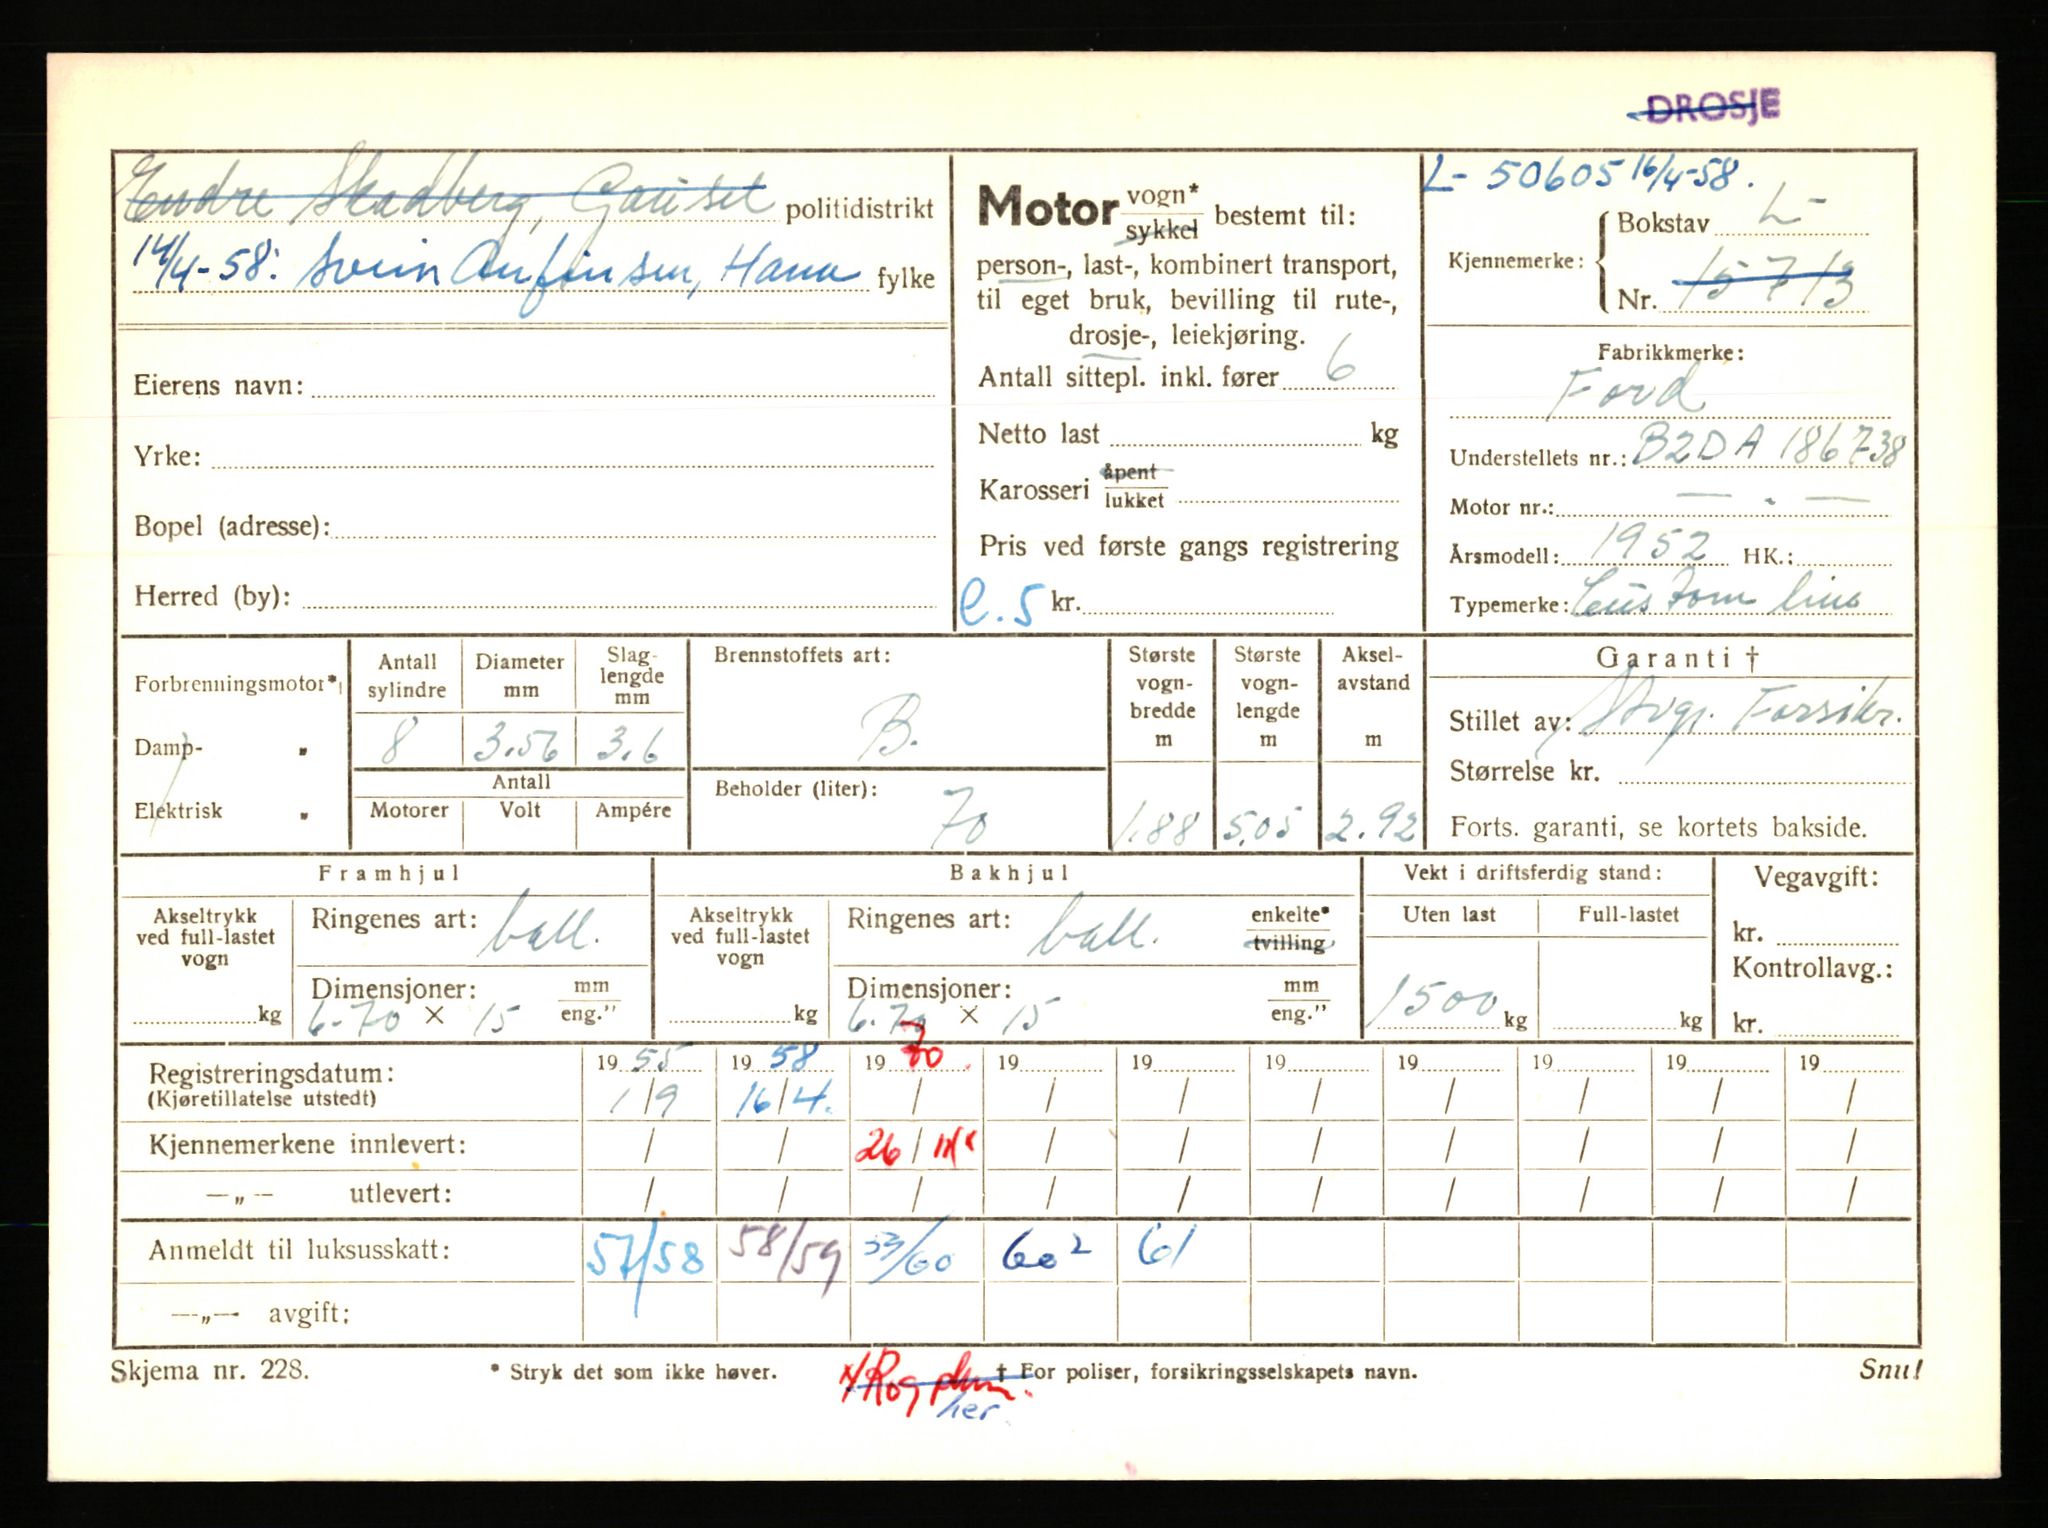 DROSJE
Endre Skadberg, Gausel politidistrikt
14/4-58: Svein Anfinsen, Hana fylke
Eierens navn:
Yrke:
Bopel (adresse):
Herred (by):
Motor vogn* sykkel bestemt til:
person-, last-, kombinert transport,
til eget bruk, bevilling til rute-,
drosje-, leiekjøring.
Antall sittepl. inkl. fører 6
Netto last kg
Karosseri åpent lukket
Pris ved første gangs registrering
C.5 kr.
L- 50605 16/4-58.
Kjennemerke: Bokstav L-
Nr. 15713
Fabrikkmerke:
Ford
Understellets nr.: B2DA 186738
Motor nr.: — . —
Årsmodell: 1952 HK.:
Typemerke: Customline
Forbrenningsmotor*
Damp- „
Elektrisk „
Antall sylindre 8
Diameter mm 3.56
Slag-lengde mm 3.6
Antall
Motorer Volt Ampére
Brennstoffets art:
B.
Beholder (liter):
70
Største vogn-bredde m 1.88
Største vogn-lengde m 5,05
Aksel-avstand m 2.92
Garanti †
Stillet av: Forsikr.
Størrelse kr.
Forts. garanti, se kortets bakside.
Framhjul
Akseltrykk ved full-lastet vogn
kg
Ringenes art: ball.
Dimensjoner: mm eng."
6-70 × 15
Bakhjul
Akseltrykk ved full-lastet vogn
kg
Ringenes art: ball. enkelte* tvilling
Dimensjoner: mm eng."
6.70 × 15
Vekt i driftsferdig stand:
Uten last Full-lastet
1500 kg kg
Vegavgift:
kr.
Kontrollavg.:
kr.
Registreringsdatum: 1955 1958 1970 19 19 19 19 19 19 19
(Kjøretillatelse utstedt) 1/9 16/4. / / / / / / / /
Kjennemerkene innlevert: / / 26/ / / / / / / /
—„— utlevert: / / / / / / / / / /
Anmeldt til luksusskatt: 57/58 58/59 59/60 60² 61
—„— avgift:
Skjema nr. 228. * Stryk det som ikke høver. † For poliser, forsikringsselskapets navn. Snu!
her.